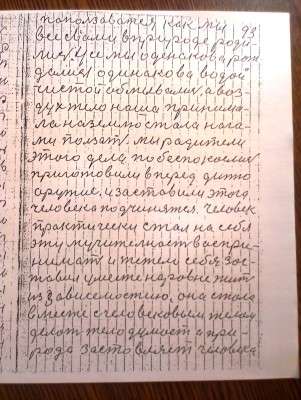 93
ползоватся как мы
все сами в природе роди-
лися и мы оденакова рож
дались одинакова водой
чистой обмывались а воз-
дух тело наша принима-
ла на землю стала нага-
ми ползат. мы радители
этого дела побеспокоились
приготовили вперед дитю
оружие. и заставили этого
человека подчинятся. человек
практически стал на себя
эту мучителност воспри-
нимат и тежело себя зас-
тавил уместе наровне жит
из зависемостию, она стала
вместе с человековым телом
делат тело думает а при-
рода заставляет человека